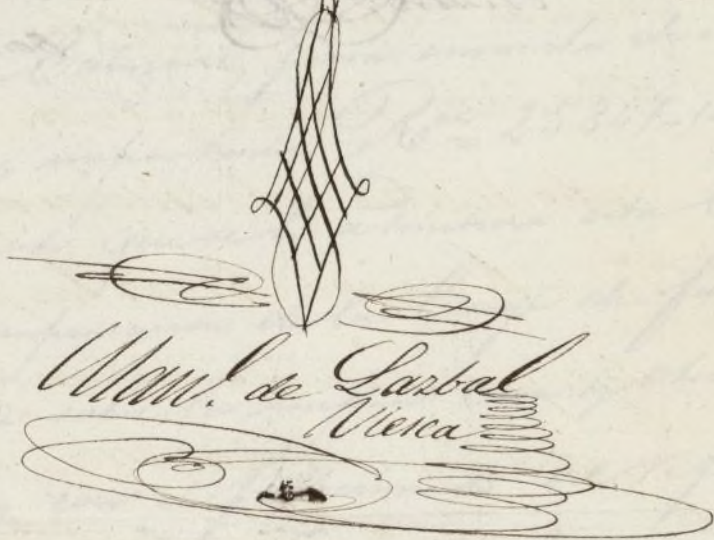 Man.l de Lazbal
Viesca